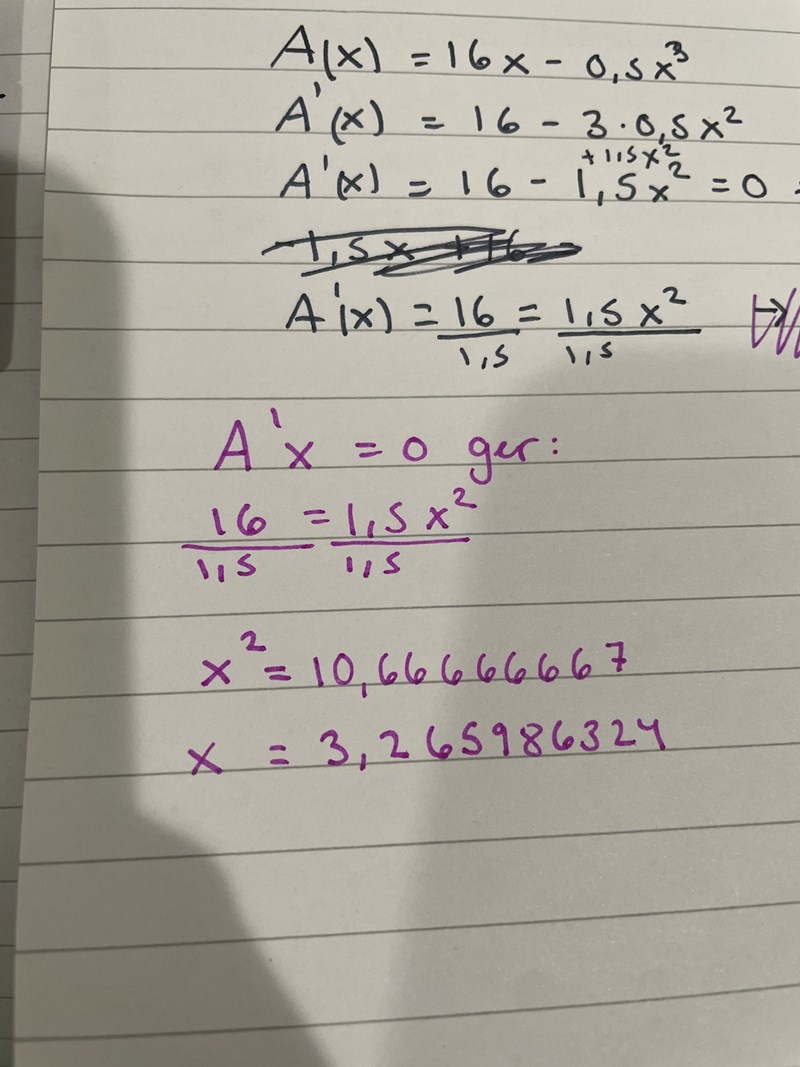 A(x) = 16x - 0,5x³
A'(x) = 16 - 3·0,5x²
+1,5x²
A'(x) = 16 - 1,5x² = 0
-1,5x +16
A'(x) = 16/1,5 = 1,5x²/1,5
A'x = 0 ger:
16/1,5 = 1,5x²/1,5
x² = 10,66666667
x = 3,265986324